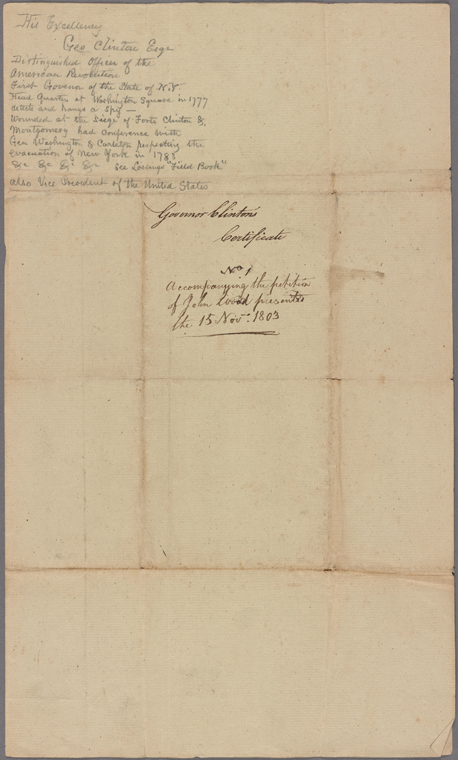 His Excellency
Geo Clinton Esqr
Distinguished Officer of the
American Revolution
First Govenor of the State of N.Y.
Head Quarters at Washington Square in 1777
and hangs a Spy —
Wounded at the Siege of Forts Clinton &
Montgomery had Conference with
Gen Washington & Carleton respecting the
evacuation of New York in 1783
&c &c &c &c See Lossings "Field Book"
also Vice President of the United States
Governor Clinton's
Certificate
No. 1
Accompanying the petition
of John Wood presented
the 15 Nov: 1803